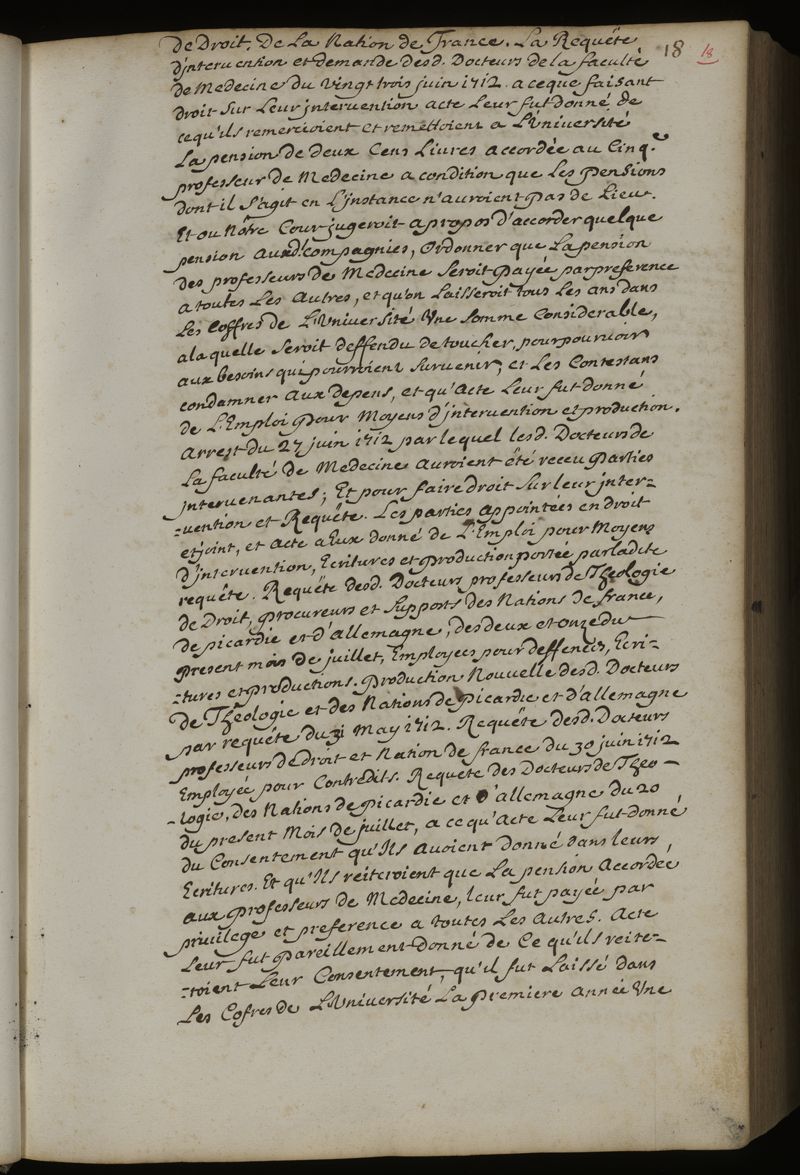 18
18
de Droit, De La Nation de France. La Requête
d'jnteruention et demande desd. Docteurs de la faculté
de Medecine du vingt trois juin 1712. a ceque faisant
droit sur Leur jnteruention acte Leur fut donné, de
cequ'ils remercioient et remettoient a L'Université
La pension de deux Cens Liures accordée au Cinq.e
professeur de Medecine a condition que Les pensions
dont il S'agit en L'jnstance n'auroient pas de Lieu.
Et ou Nôtre Cour jugeroit apropos d'accorder quelque
pension auxd. compagnies, Ordonner que La pension
des professeurs de Medecine Seroit payée par preference
a toutes Les autres, et qu'on Laisseroit tous Les ans dans
Les Coffres de L'Université Vne somme Considerable,
a laquelle Seroit deffendu de toucher, pour pouruoir
aux besoins qui pourroient suruenir, et Les Contestans
condamner aux depens, et qu'acte Leur fut donné
de L'Emploi pour Moyens d'jnteruention et production.
Arrest du 27 juin 1712 par lequel lesd. Docteurs de
La faculté de Medecine auroient été receu parties
jnteruenantes; Et pour faire droit sur Leur jnter-
-uention et Requête. Les parties appointées en droit
et joint, et acte a Eux donné de L'Emploi pour Moyens
d'jnteruention, Ecritures et production portée par ladite
requête. Requête desd. Docteurs professeurs de Theologie
de Droit, procureurs et Supports des Nations de france,
de picardie et d'allemagne, des deux et onze du
present mois de juillet, Employées pour deffences, Ecri-
-tures et productions. production Nouuelle desd. Docteurs
de Theologie et des Nations de picardie et d'allemagne
par requête du 31 May 1712. Requête desd. Docteurs
professeurs de Droit et Nation de france du 30 juin 1712
Employée pour Contredits. Requete des Docteurs de Theo-
-logie, des Nations de picardie et d'allemagne du 20
du present Mois de juillet, a ce qu'acte Leur fut donné
du Consentement qu'Ils auoient donné dans leurs
Ecritures. Et qu'Ils reiteroient que La pension accordée
aux professeurs de Medecine, leur fut payée par
priuilege et preference a toutes Les autres. acte
Leur fut pareillement donné de Ce qu'ils reite-
-roient Leur Consentement, qu'il fut Laissé dans
Les Cofres de L'Université La premiere année Vne